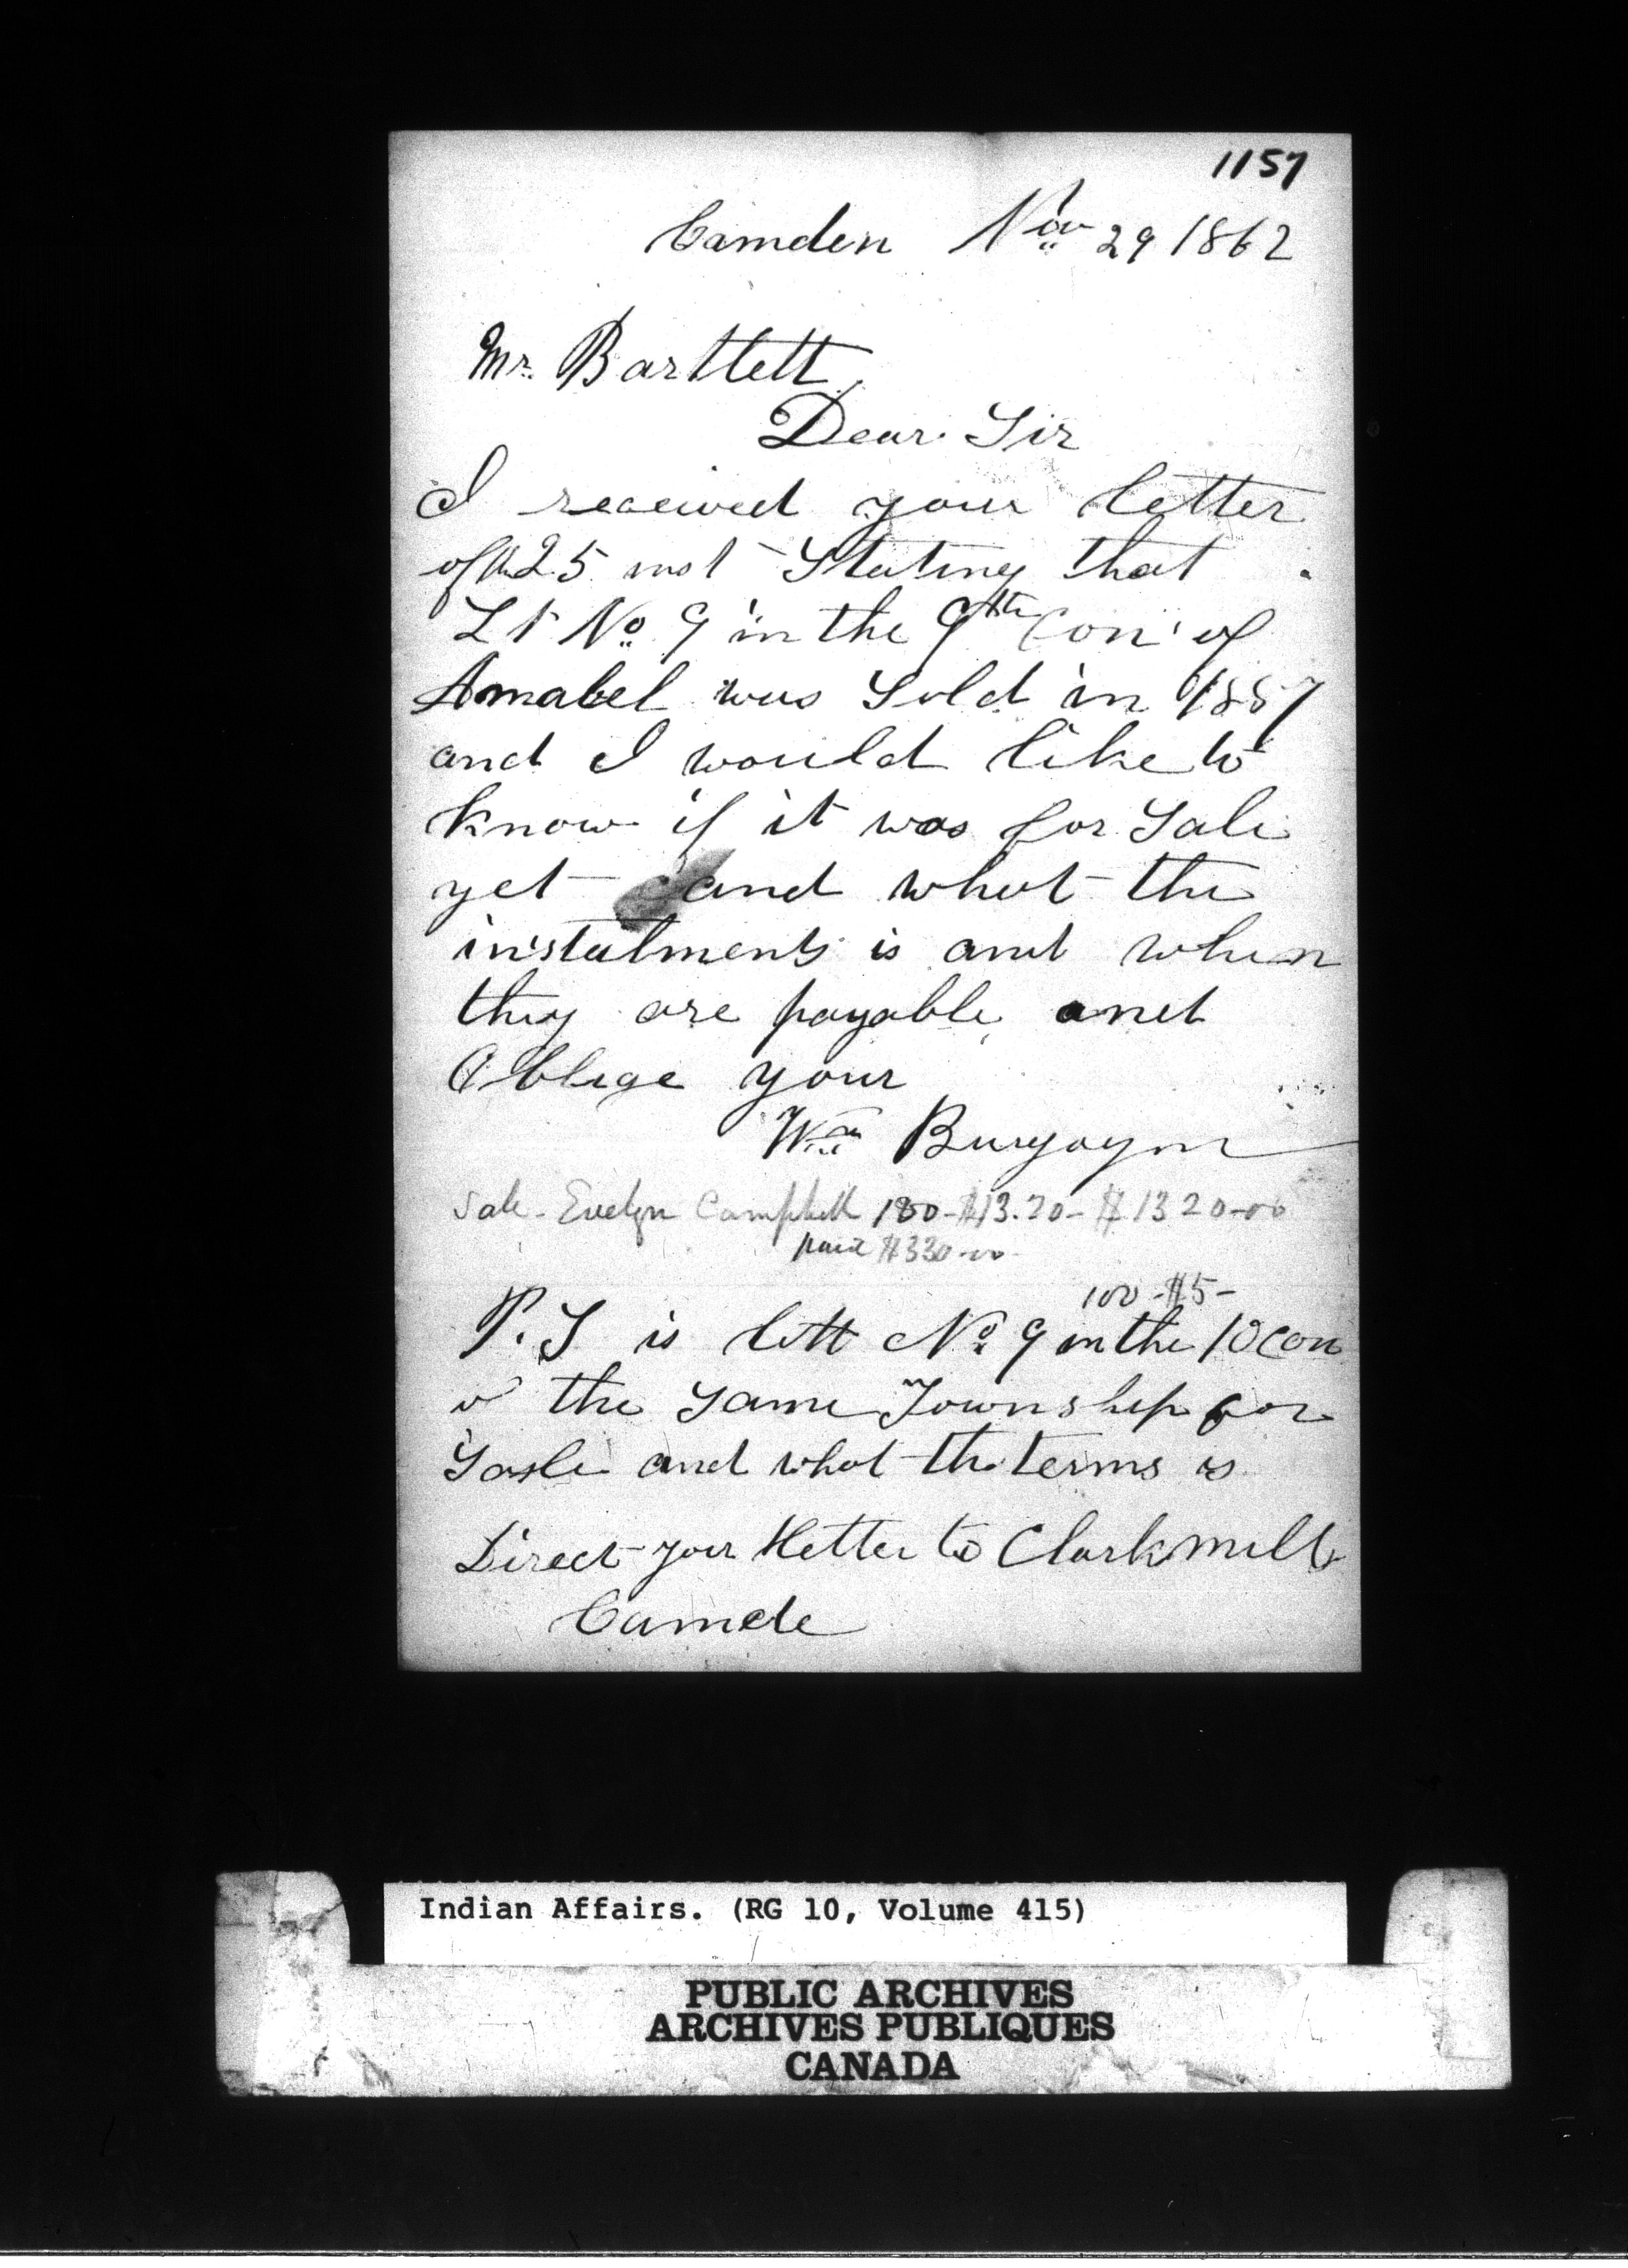 1157
Camden Nov 29 1862
Mr. Bartlett,
Dear Sir
I received your letter
of the 25 inst Stating that
Lt No 9 in the 9th Con of
Amabel was Sold in 1857
and I would like to
know if it was for Sale
yet and what the
instalments is and when
they are payable and
Oblige your
Wm Burgoyn
Sale - Evelyn Campbell 100 - $13.20 - $1320-00
paid $330-00
100 - $5 -
P.S is lott No 9 in the 10 Con
o the Same Township for
Sasle and what the terms is
Direct your Hetter to Clark mills
Camde
Indian Affairs. (RG 10, Volume 415)
PUBLIC ARCHIVES
ARCHIVES PUBLIQUES
CANADA